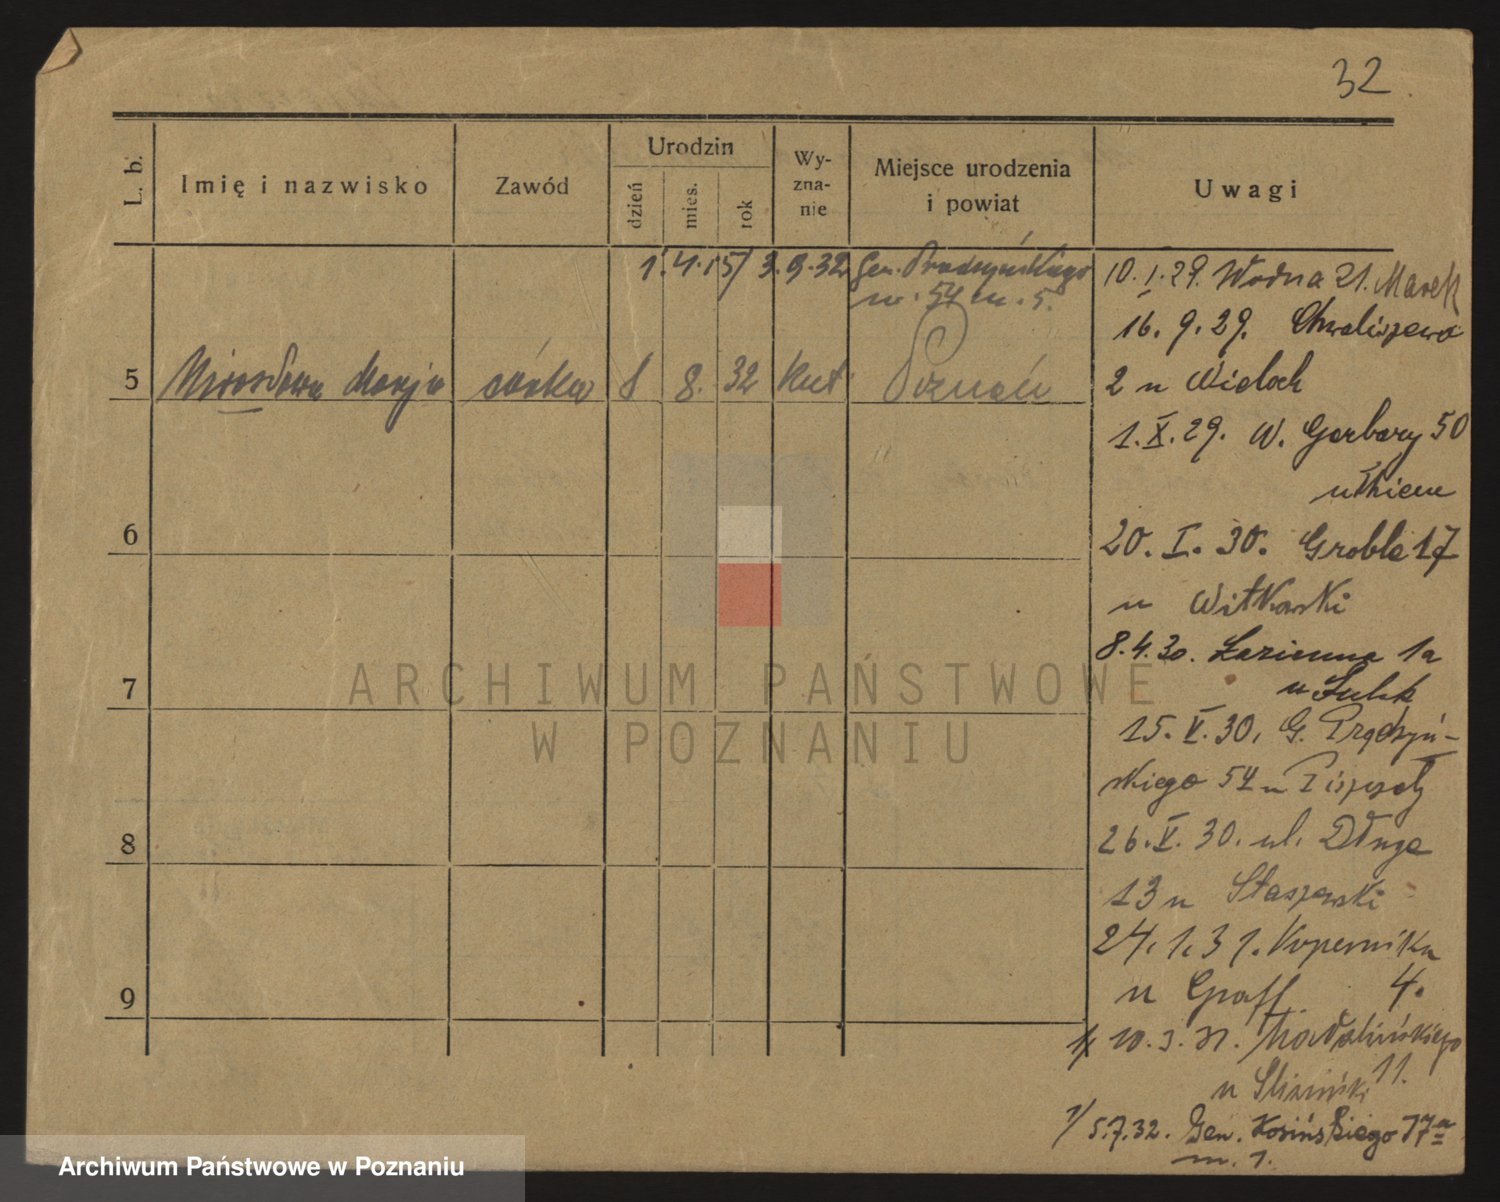 32
L. b.
Imię i nazwisko
Zawód
Urodzin
dzień
mies.
rok
Wy-
zna-
nie
Miejsce urodzenia
i powiat
Uwagi
3.9.32 Gen. Prądzyńskiego
nr. 54 m. 5.
5 Mirosława Marja córka 8 8. 32 kat Poznań
6
7
8
9
10.I.29. Wodna 21. Marek
16.9.29. Chwaliszewo
2 u Wieloch
1.X.29. W. Garbary 50
u Thiem
20.I.30. Grobla 17
u Witkowski
8.4.30. Łazienna 1a
u
15.V.30. G. Prądzyń-
skiego 54 u
26.V.30. ul. Długa
13 u Staszewski
24.1.31. Kopernika
u Graff 4.
10.3.31. Madalińskiego
u 11.
5.7.32. Gen. Kosińskiego
m. 1.
ARCHIWUM PAŃSTWOWE
W POZNANIU
Archiwum Państwowe w Poznaniu